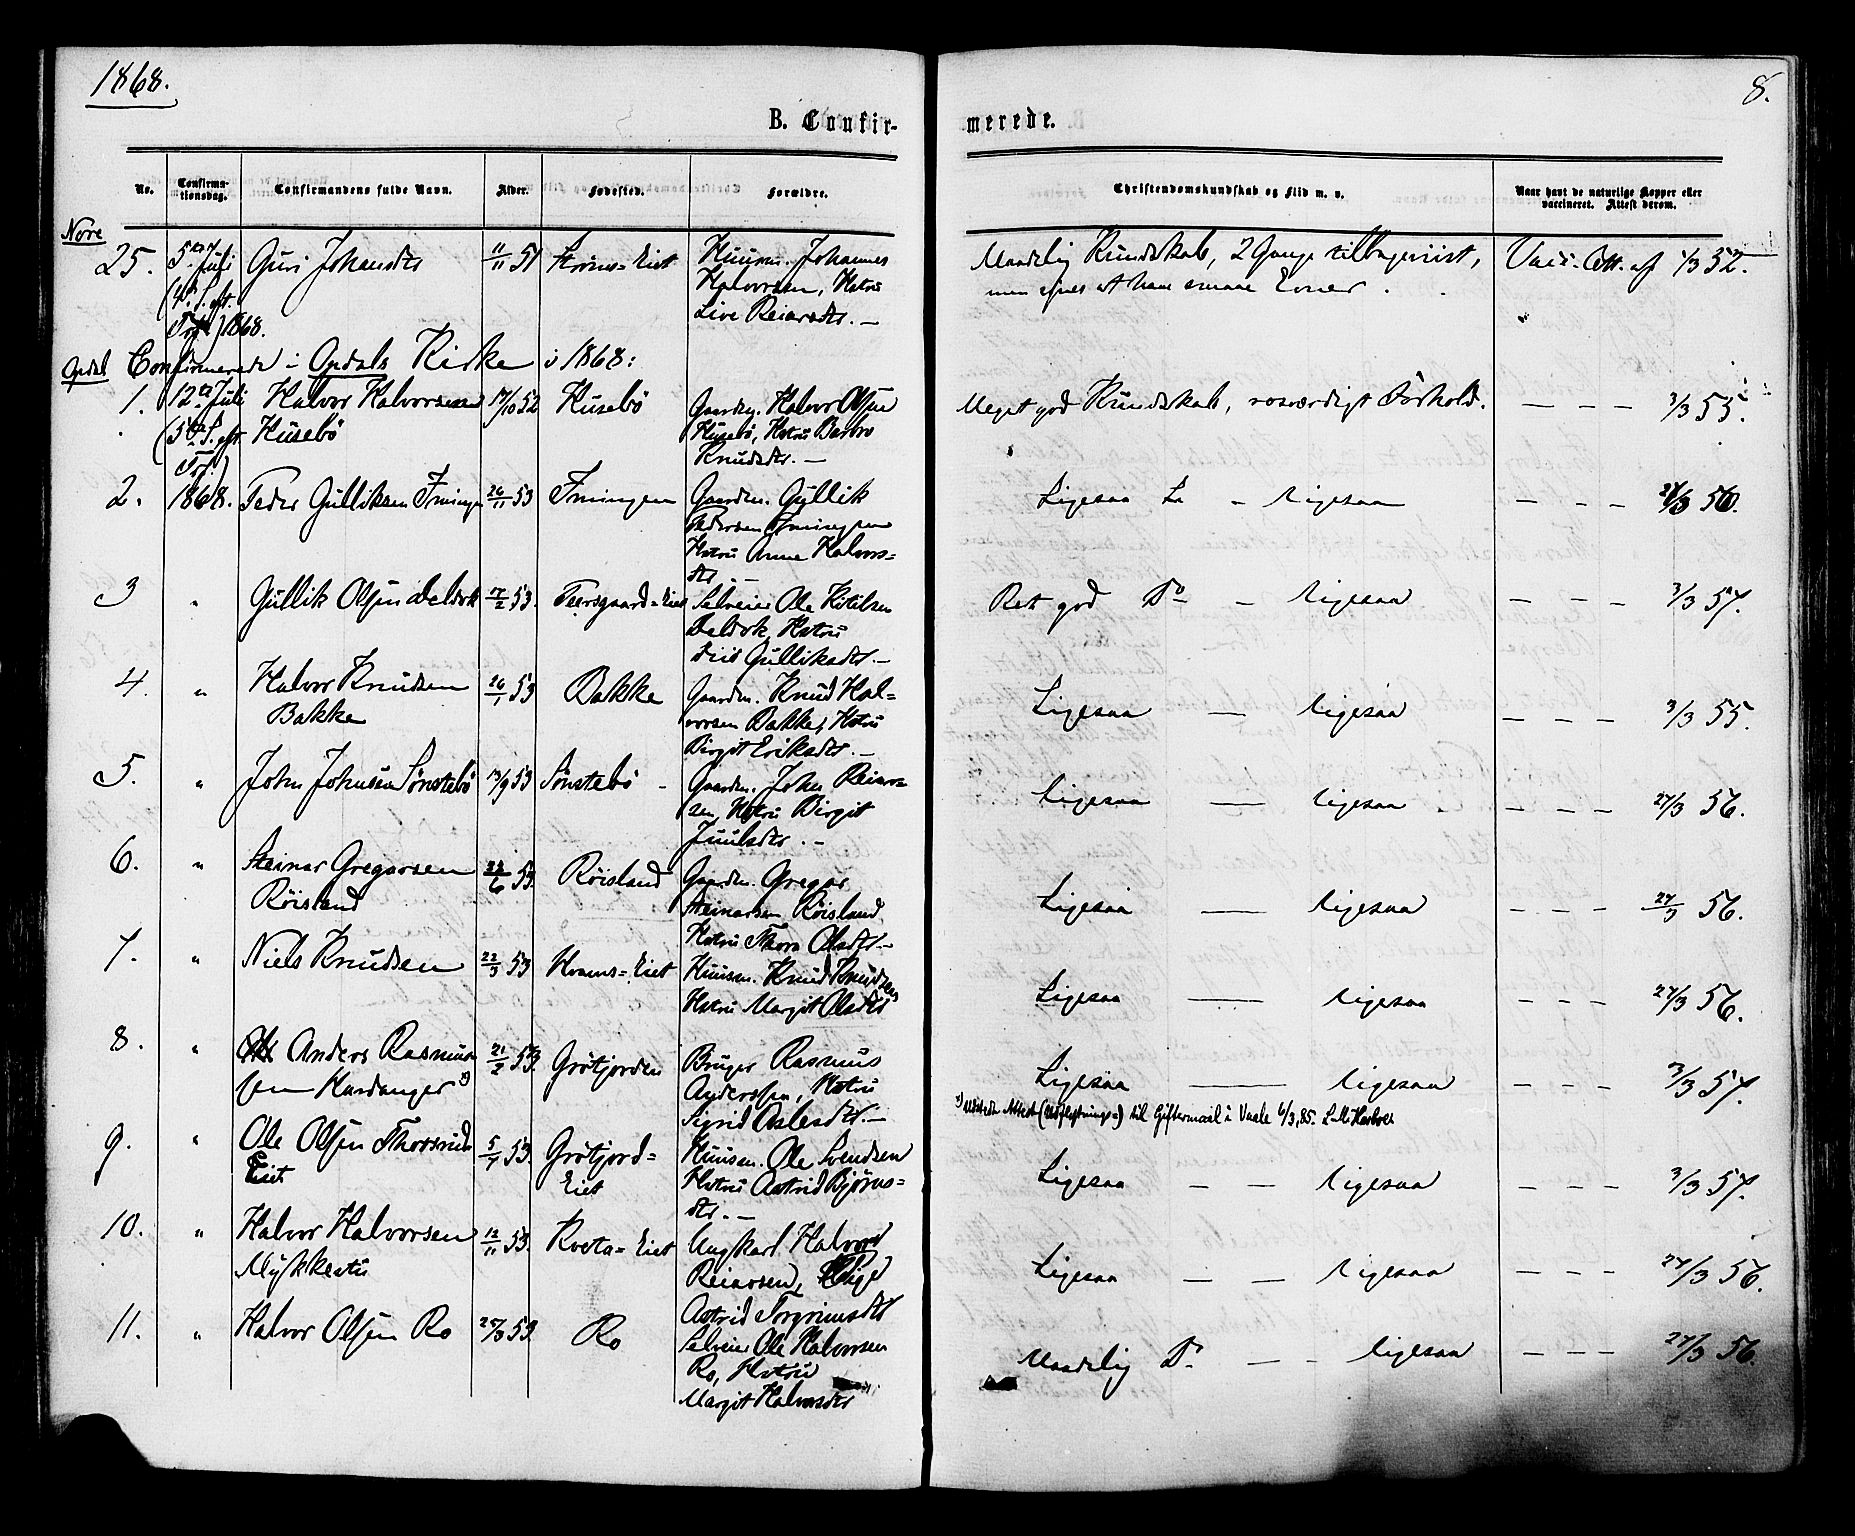 1868.
8.
B. Confir-
merede.
No.
Confirma-
tionsdag.
Confirmandens fulde Navn.
Alder.
Fødested.
Forældre.
Christendomskundskab og Flid m. v.
Naar havt de naturlige Kopper eller
vaccineret. Attest derom.
Nore
25. 5te Juli Guri Johansdtr 11/11 51 Ströms=Eiet Huusm. Johannes
Halvorsen, Hstru
Live Reiarsdtr. —
(4. S. eft.
Trf.) 1868.
Maadelig Kundskab, 2 Gange tilbageviist,
men synes at have svage Evner.
Vacc. Att. af 1/3 52.
Opdal Confirmerede i Opdals Kirke i 1868:
1. 12te Juli Halvor Halvorsen 14/10 52 Husebö Gaardm. Halvor Olsen
(5te S. eft. Husebö Husebö, Hstru Barbro
Trf.) Knudsdtr. —
Meget god Kundskab, rosværdigt Forhold. — — — 3/3 55.
2. 1868. Peder Gulliksen Frningen 26/11 53 Gaardm. Gullik
Pedersen
Hstru Anne Halvors-
dtr. —
Ligesaa — ligesaa — — — 56.
3 " Gullik Olsen 17/2 53. Teersgaard=Eiet Selveier Ole Kitilsen
Hstru
Gulliksdtr. —
Ret god Do — ligesaa — — — 3/3 57.
4. " Halvor Knudsen 26/1 53 Bakke Gaardm. Knud Hal-
Bakke vorsen Bakke, Hstru
Birgit Eriksdtr. —
Ligesaa — ligesaa — — — 3/3 55.
5. " John Johnsen Sönstebö 13/9 53 Sönstebö Gaardm. John Reiar-
sen, Hstru Birgit
Juulsdtr. —
Ligesaa — ligesaa — — — 27/3 56.
6. " Steinar Gregarsen 22/6 53. Röisland Gaardm. Gregar
Röisland Steinarsen Röisland
Hstru Thora Olsdtr. —
Ligesaa — ligesaa — — — 27/3 56.
7. " Niels Knudsen 22/3 53 Kvams=Eiet Huusm. Knud Knudsen
Hstru Margit Olsdtr
Ligesaa — ligesaa — — — 27/3 56.
8. " Anders Rasmus- 21/2 53. Grötjorden Bruger Rasmus
sen Hardanger x) Anderssen, Hstru
Sigrid Aslesdtr. —
Ligesaa — ligesaa — — — 3/3 57.
x) Udstedt Attest (Udflytnings=) til Giftermaal i Vaale 6/3,85.
9. " Ole Olsen Thorsrud 5/7 53. Grötjord= Huusm. Ole Svendsen
Eiet Eiet Hstru Astrid Björns-
dtr. —
Ligesaa — — ligesaa — — — 3/3 57.
10. " Halvor Halvorsen 12/11 53. Kveta=Eiet Ungkarl Halvor
Mykkestu Reiarsen, Pige
Astrid Torgrimsdtr
Ligesaa — — ligesaa — — — 27/3 56.
11. " Halvor Olsen Ro 25/3 53. Ro Selveier Ole Halvorsen
Ro, Hstru
Margit Halvorsdtr
Maadelig Do — — ligesaa — — — 27/3 56.